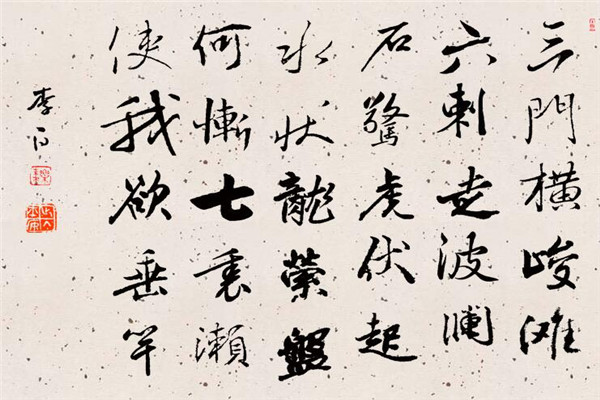 三門横峻滩
六刺走波瀾
石驚虎伏起
水状龍縈盤
何慚七裏瀨
使我欲垂竿
李白